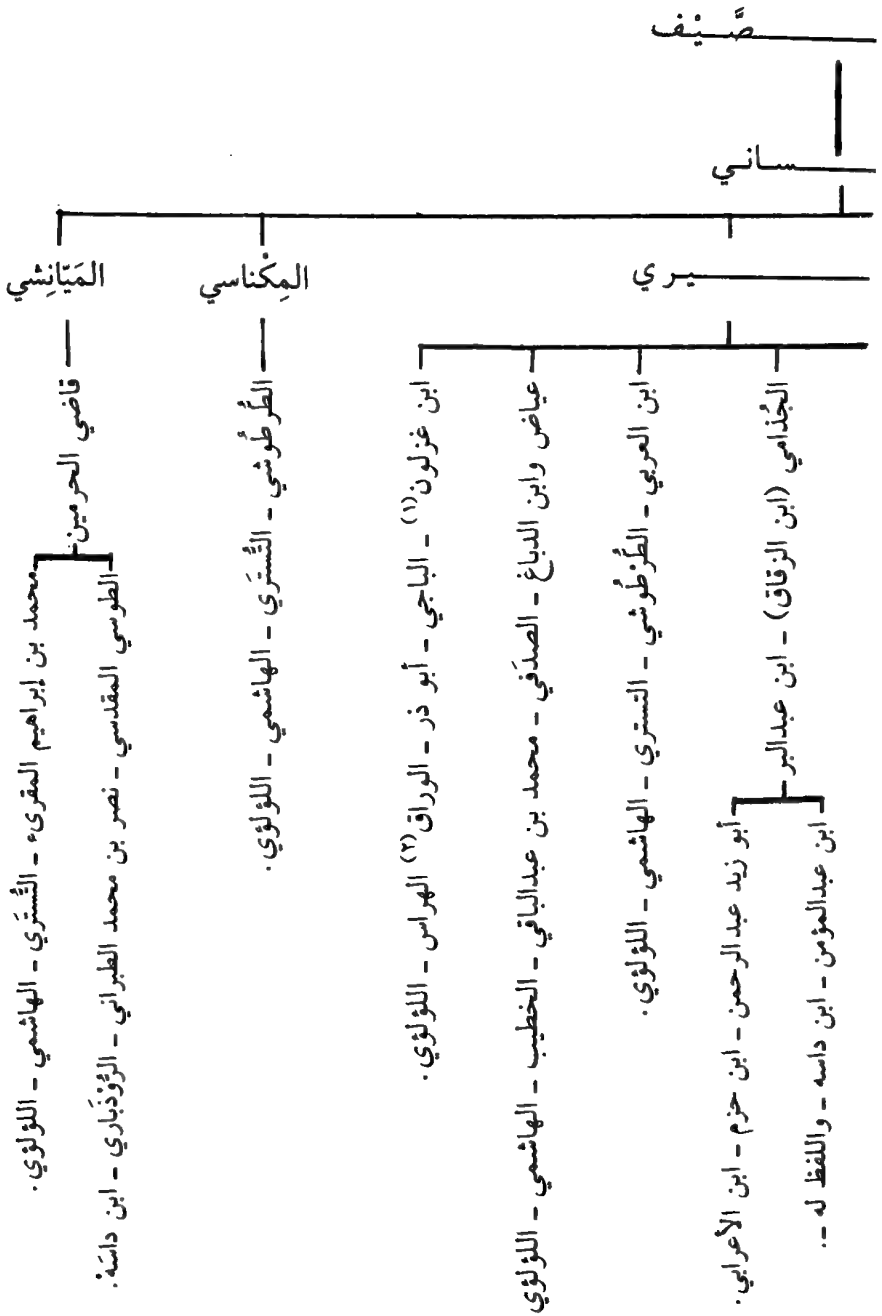 صَّـيْـف
ـسـانـي
ـيـري
المِكْناسي
المَيّانِشي
الجُذامي (ابن الزقاق) - ابن عبدالبر
ابن عبدالمؤمن - ابن داسه - واللفظ له -.
أبو زيد عبدالرحمن - ابن حزم - ابن الأعرابي.
ابن العربي - الطُّرْطُوشي - التستري - الهاشمي - اللؤلؤي.
عياض وابن الدباغ - الصدَفي - محمد بن عبدالباقي - الخطيب - الهاشمي - اللؤلؤي
ابن غزلون(١) - الباجي - أبو ذر - الوراق(٢) الهراس - اللؤلؤي.
الطُّرطُوشي - التُّسْتَري - الهاشمي - اللؤلؤي.
قاضي الحرمين
الطوسي المقدسي - نصر بن محمد الطبراني - الرُّوْذَباري - ابن داسَه.
محمد بن إبراهيم المقرىء - التُّسْتَري - الهاشمي - اللؤلؤي.